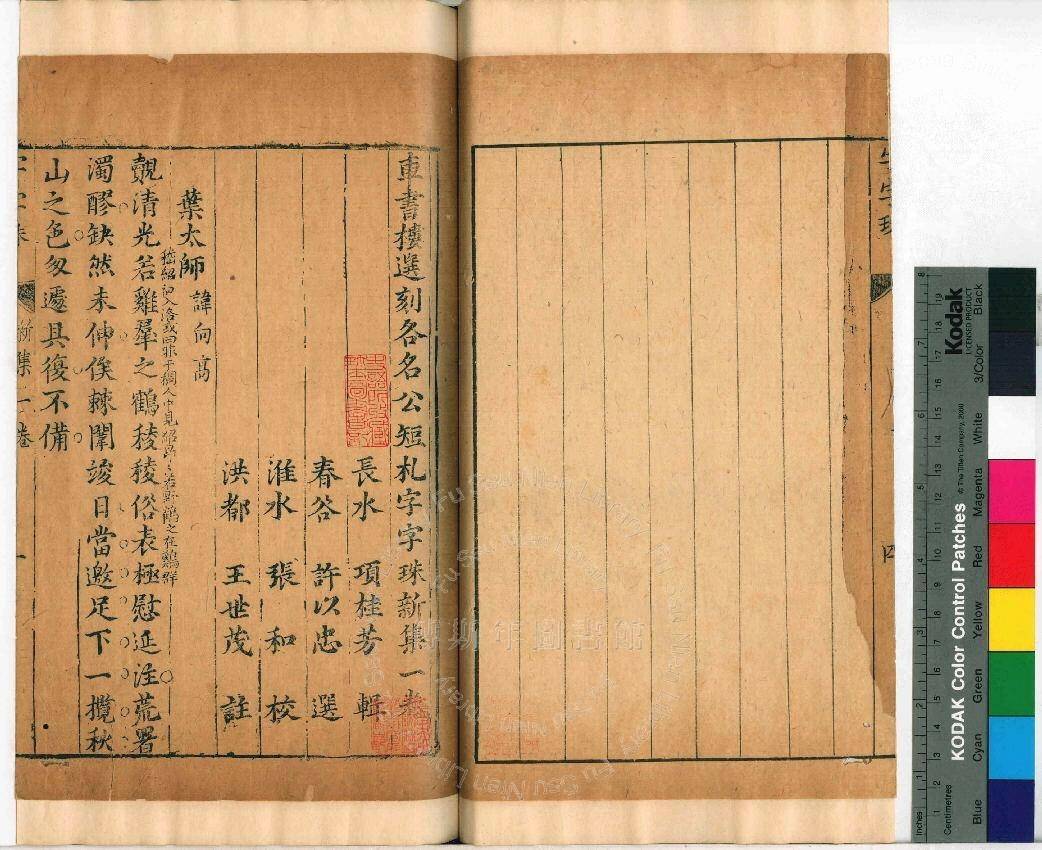 車書樓選刻各名公短札字字珠新集一卷
長水 項桂芳 輯
春谷 許以忠 選
淮水 張和 校
洪都 王世茂 註
葉太師 諱向高
覿清光若雞羣之鶴稜稜俗表極慰延注荒署
嵇紹初入洛或曰昨于稠人中見紹昂昂若野鶴之在鷄群
濁醪缺然未伸俟棘闈竣日當邀足下一攬秋
山之色匆遽具復不備
字字珠 新集一卷 一
傅斯年圖書館
Fu Ssu Nien Library
Kodak
LICENSED PRODUCT
KODAK Color Control Patches
© The Tiffen Company, 2000
Blue Cyan Green Yellow Red Magenta White 3/Color Black
Inches 1 2 3 4 5 6 7 8
Centimetres 1 2 3 4 5 6 7 8 9 10 11 12 13 14 15 16 17 18 19